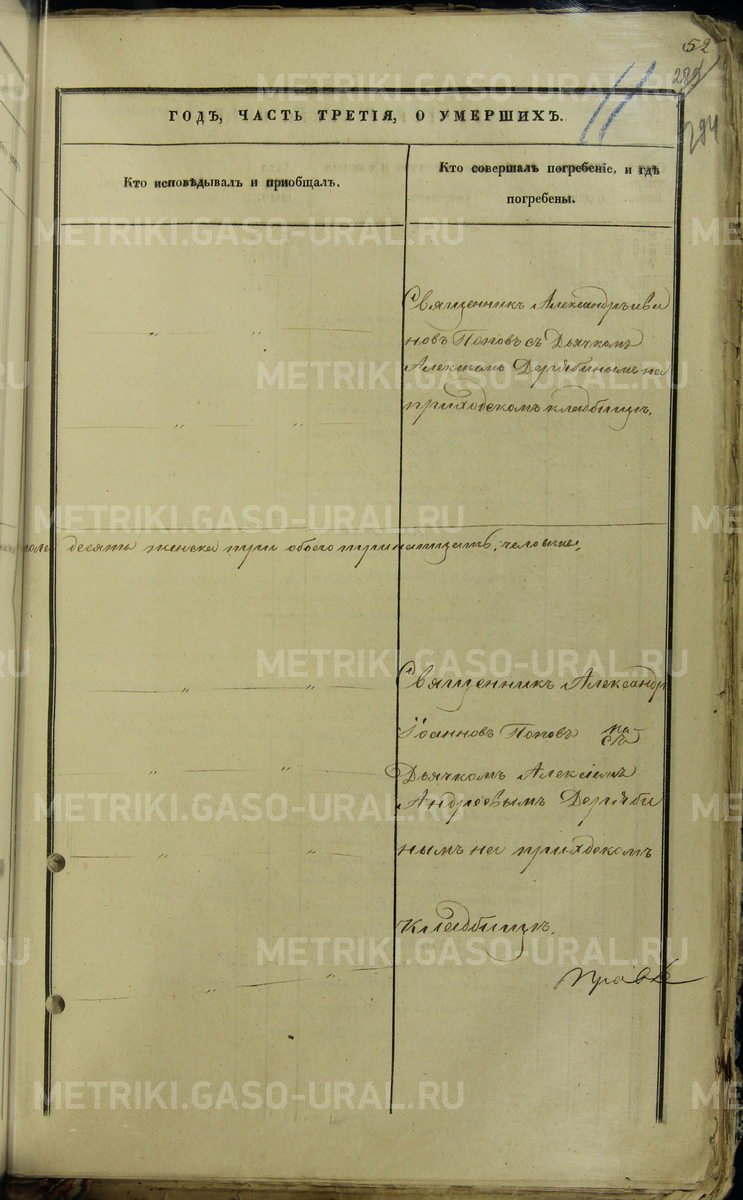 52
294
ГОДЪ, ЧАСТЬ ТРЕТІЯ, О УМЕРШИХЪ.
Кто исповѣдывалъ и пріобщалъ.
Кто совершалъ погребеніе, и гдѣ
погребены.
Священникъ Александръ Ива
новъ Поповъ съ Дьячкомъ
Алексіемъ Дерябинымъ на
приходскомъ кладбищѣ.
десять женска три обоего тринатцать человекъ.
Священникъ Александръ
Іоанновъ Поповъ съ
Дьячкомъ Алексіемъ
Андреевымъ Деряби
нымъ на прихдскомъ
кладбищѣ.
METRIKI.GASO-URAL.RU